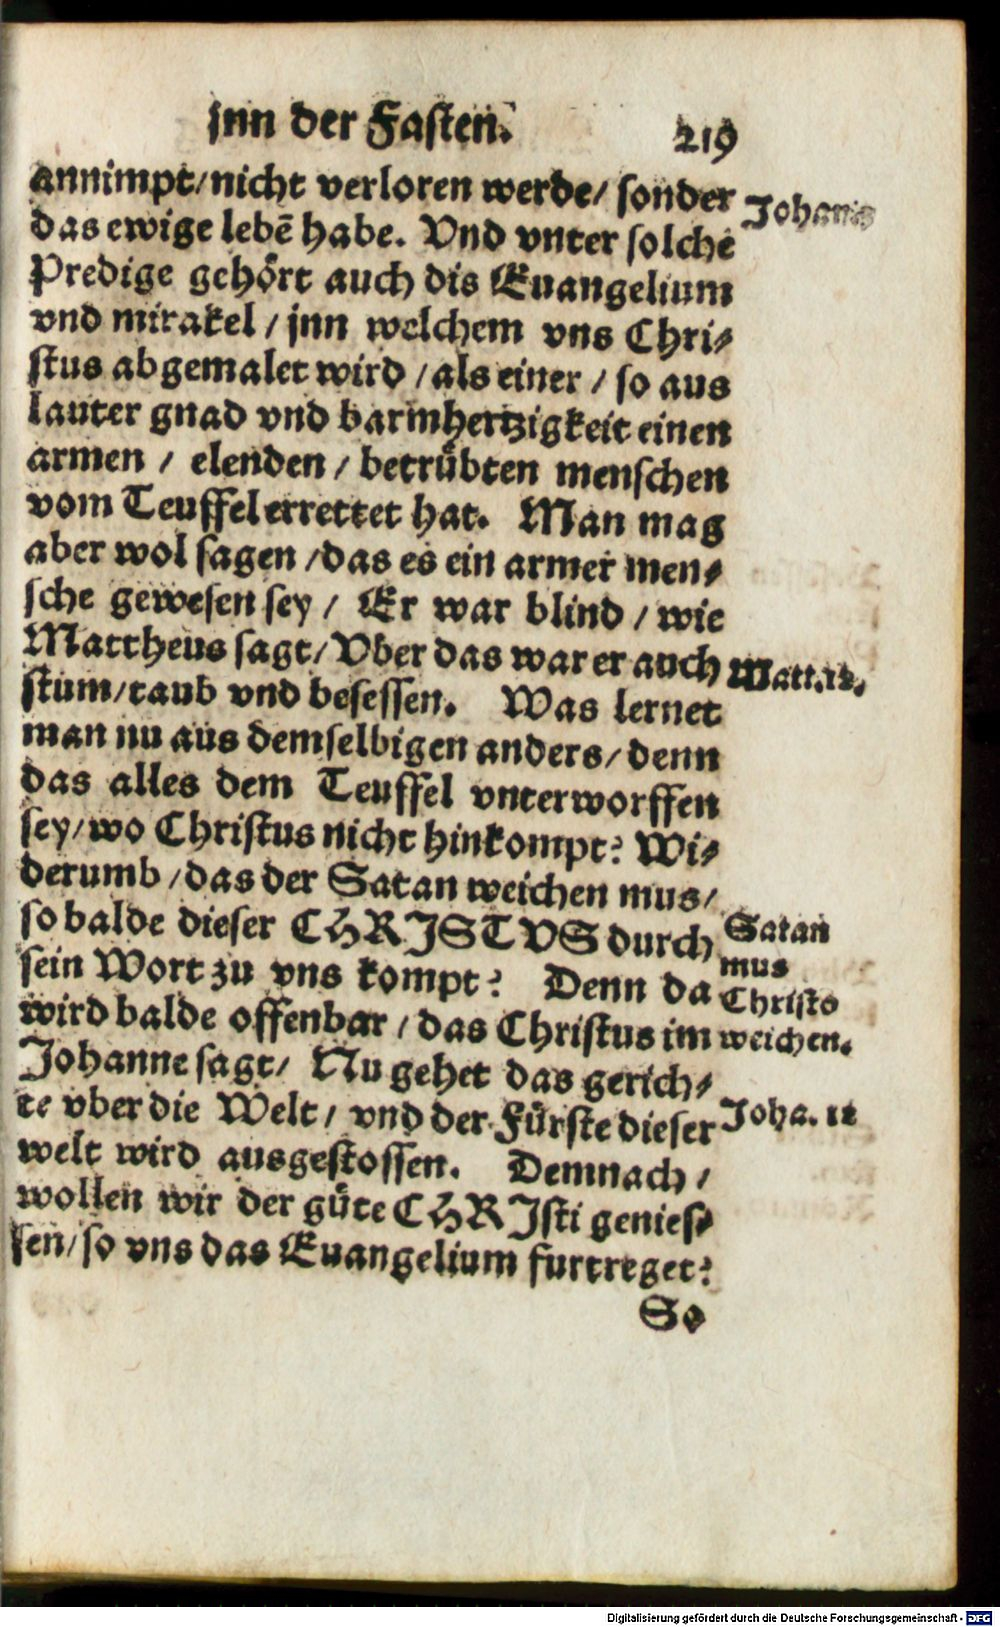 jnn der Fasten. 219
annimpt/nicht verloren werde/ sonder
das ewige lebẽ habe. Vnd vnter solche
Predige gehört auch dis Euangelium
vnd mirakel / jnn welchem vns Chri-
stus abgemalet wird / als einer / so aus
lauter gnad vnd barmhertzigkeit einen
armen / elenden / betrübten menschen
vom Teuffel errettet hat. Man mag
aber wol sagen /das es ein armer men-
sche gewesen sey / Er war blind / wie
Mattheus sagt/ Vber das war er auch
stum/taub vnd besessen. Was lernet
man nu aus demselbigen anders/ denn
das alles dem Teuffel vnterworffen
sey/wo Christus nicht hinkompt? Wi-
derumb /das der Satan weichen mus/
so balde dieser CHRISTVS durch
sein Wort zu vns kompt? Denn da
wird balde offenbar / das Christus im
Johanne sagt/ Nu gehet das gerich-
te vber die Welt/ vnd der Fürste dieser
welt wird ausgestossen. Demnach /
wollen wir der güte CHRIsti genies-
sen/so vns das Euangelium furtreget?
So
Johanis
Matt.12.
Satan
mus
Christo
weichen.
Joha. 12
Digitalisierung gefördert durch die Deutsche Forschungsgemeinschaft - DFG